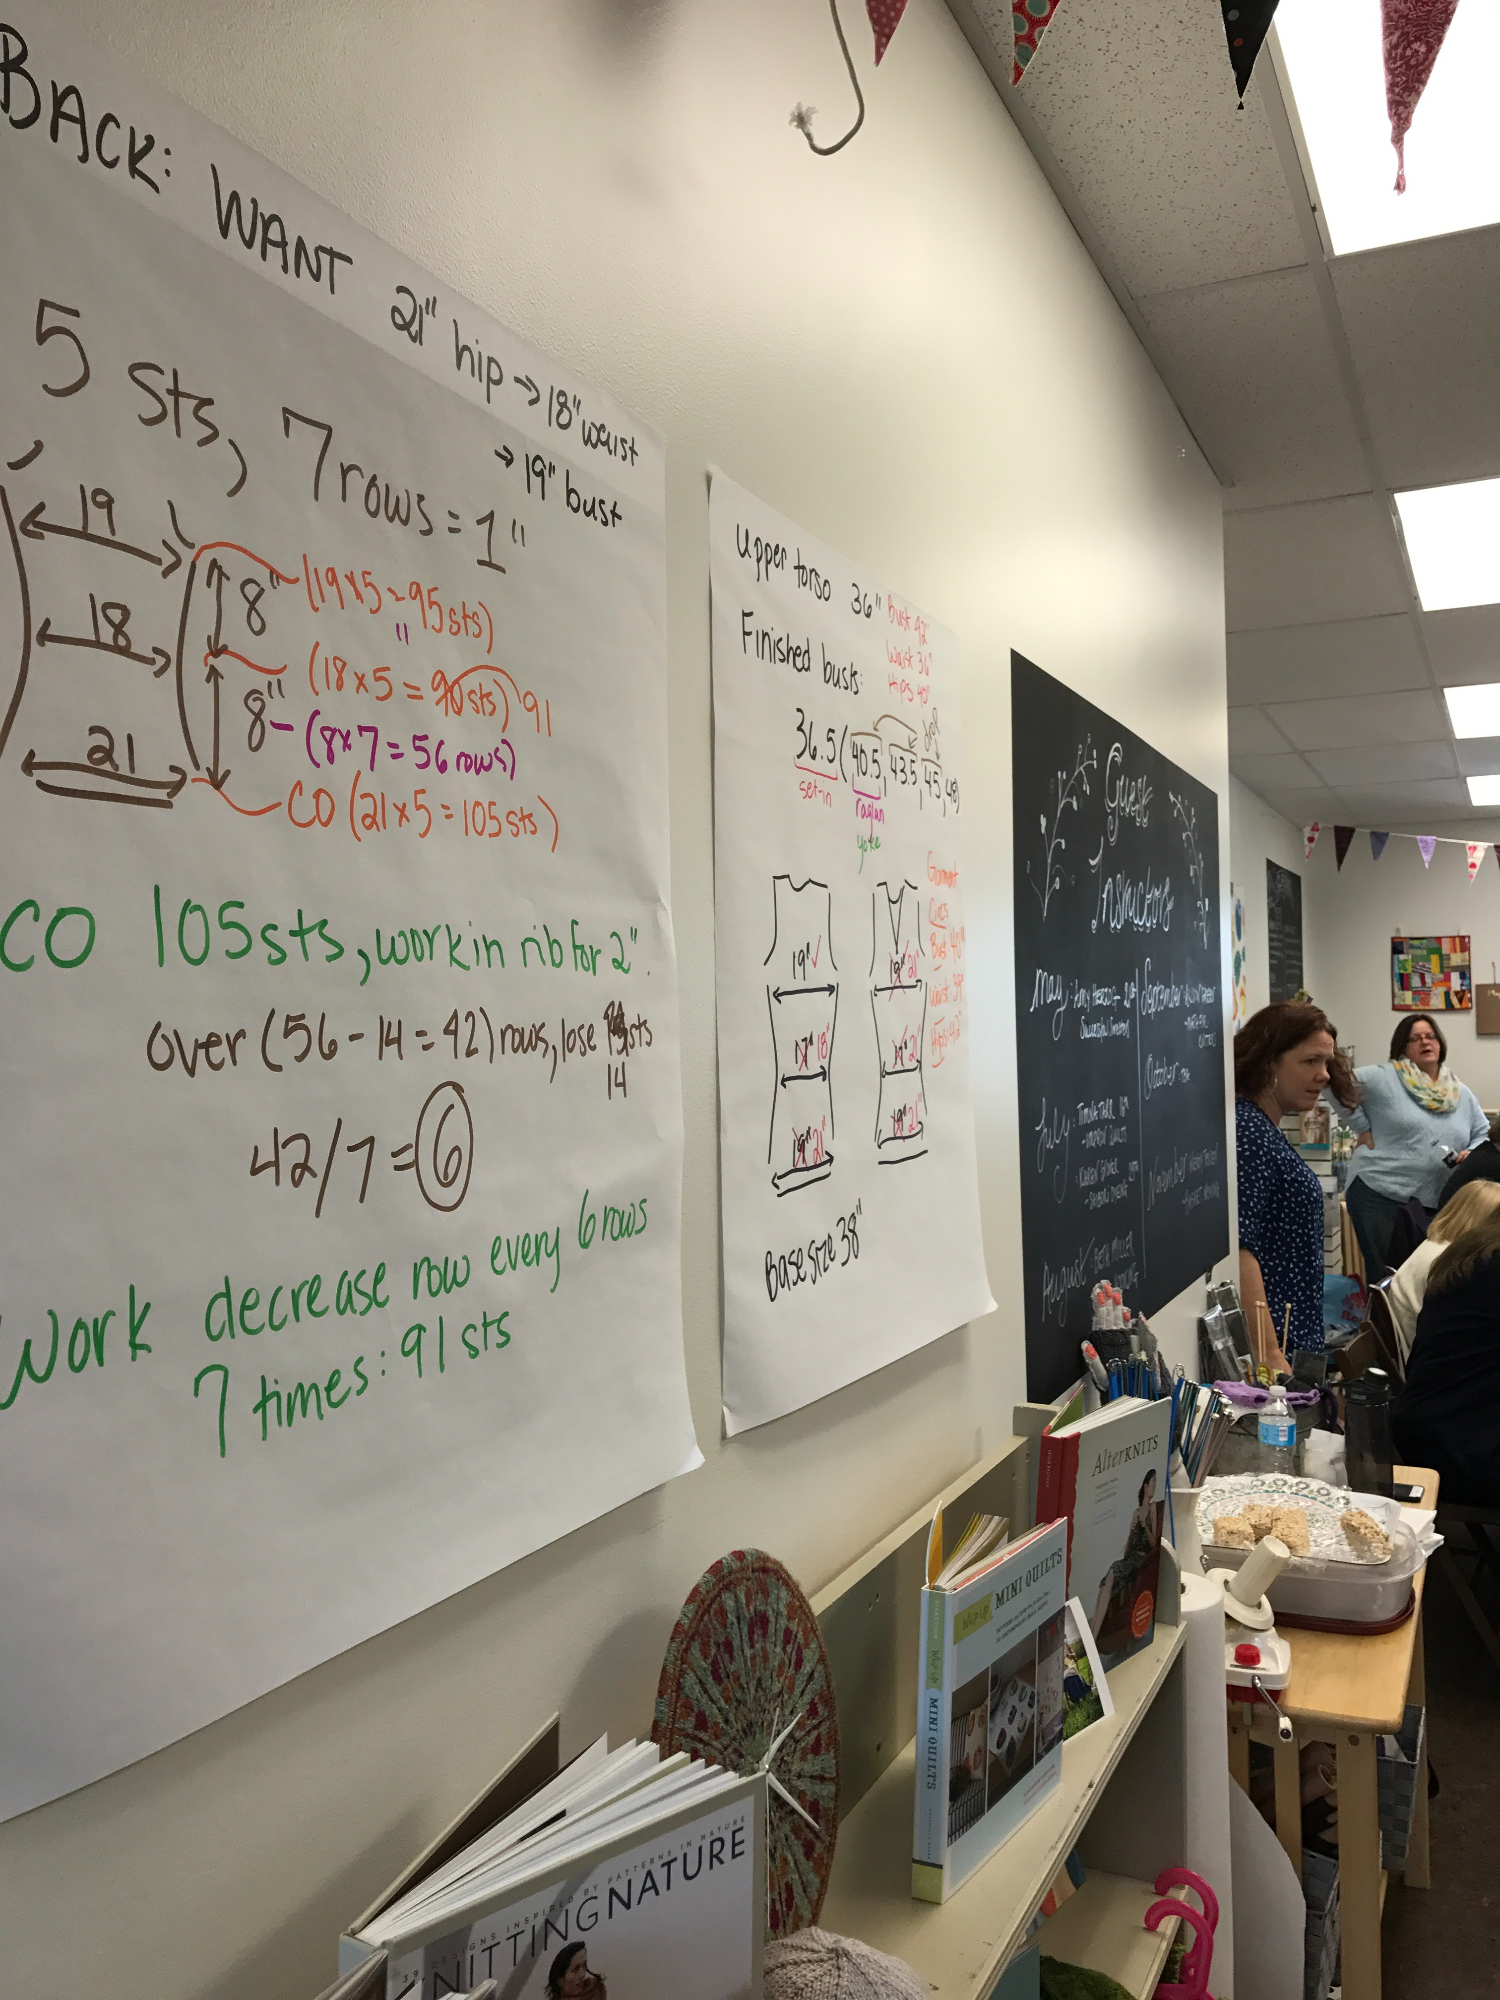 BACK: WANT 21" hip → 18" waist
→ 19" bust
5 sts, 7 rows = 1"
19
8"
(19x5 = 95 sts)
18
(18x5 = 90 sts) 91
8" - (8x7 = 56 rows)
21
CO (21x5 = 105 sts)
CO 105 sts, work in rib for 2".
over (56 - 14 = 42) rows, lose sts
14
42/7 = 6
Work decrease row every 6 rows
7 times: 91 sts
Upper torso 36"
Bust 42"
Waist 36"
Hips 40"
Finished busts:
drop
36.5 (40.5, 43.5, 45, 48)
set-in
raglan
yoke
Garment
Circs
Bust 40"
Waist 39"
Hips: 42"
19" ✓
19" 21"
17" 18"
19" 21"
19" 21"
19" 21"
Base size 38"
Guest
Instructors
May: Amy Herzog
September
October
July:
November
August: Beth Miller
AlterKNITS
Wrap Up MINI QUILTS
MINI QUILTS
39 DESIGNS INSPIRED BY PATTERNS IN NATURE
KNITTING NATURE